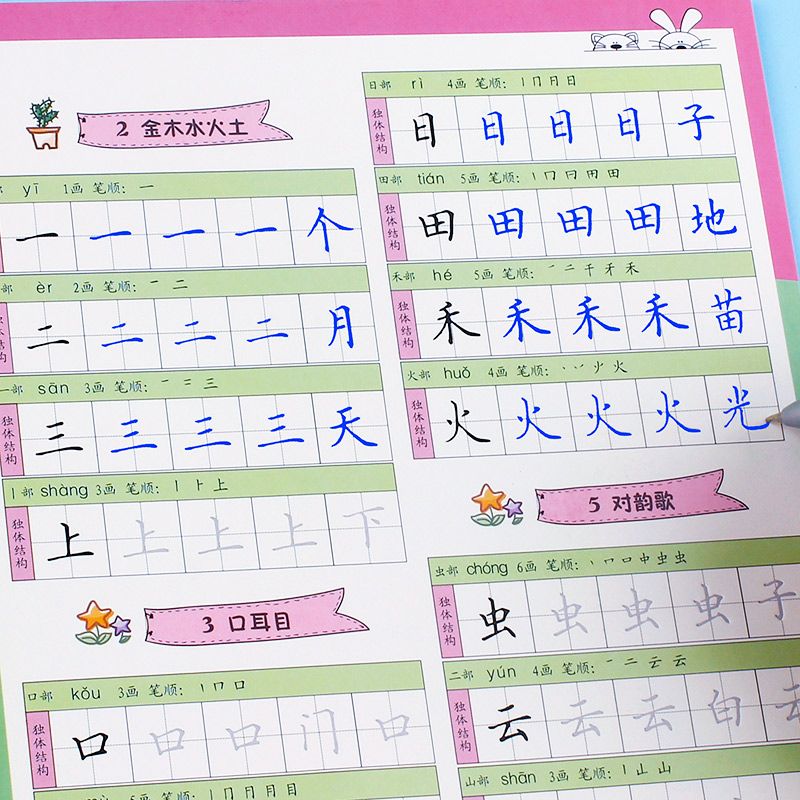 2 金木水火土
部 yī 1画 笔顺：一
一 一 一 一 个
部 èr 2画 笔顺：一 二
二 二 二 二 月
一部 sān 3画 笔顺：一 二 三
独体结构 三 三 三 三 天
丨部 shàng 3画 笔顺：丨 ⺊ 上
独体结构 上 上 上 上 下
3 口耳目
口部 kǒu 3画 笔顺：丨 冂 口
独体结构 口 口 口 门 口
5画 笔顺：丨 冂 月 月 目
日部 rì 4画 笔顺：丨 冂 日 日
独体结构 日 日 日 日 子
田部 tián 5画 笔顺：丨 冂 日 田 田
独体结构 田 田 田 田 地
禾部 hé 5画 笔顺：一 二 千 禾 禾
独体结构 禾 禾 禾 禾 苗
火部 huǒ 4画 笔顺：丶 丷 火 火
独体结构 火 火 火 火 光
5 对韵歌
虫部 chóng 6画 笔顺：丶 冂 口 中 虫 虫
独体结构 虫 虫 虫 虫 子
二部 yún 4画 笔顺：一 二 云 云
独体结构 云 云 云 白 云
山部 shān 3画 笔顺：丨 山 山